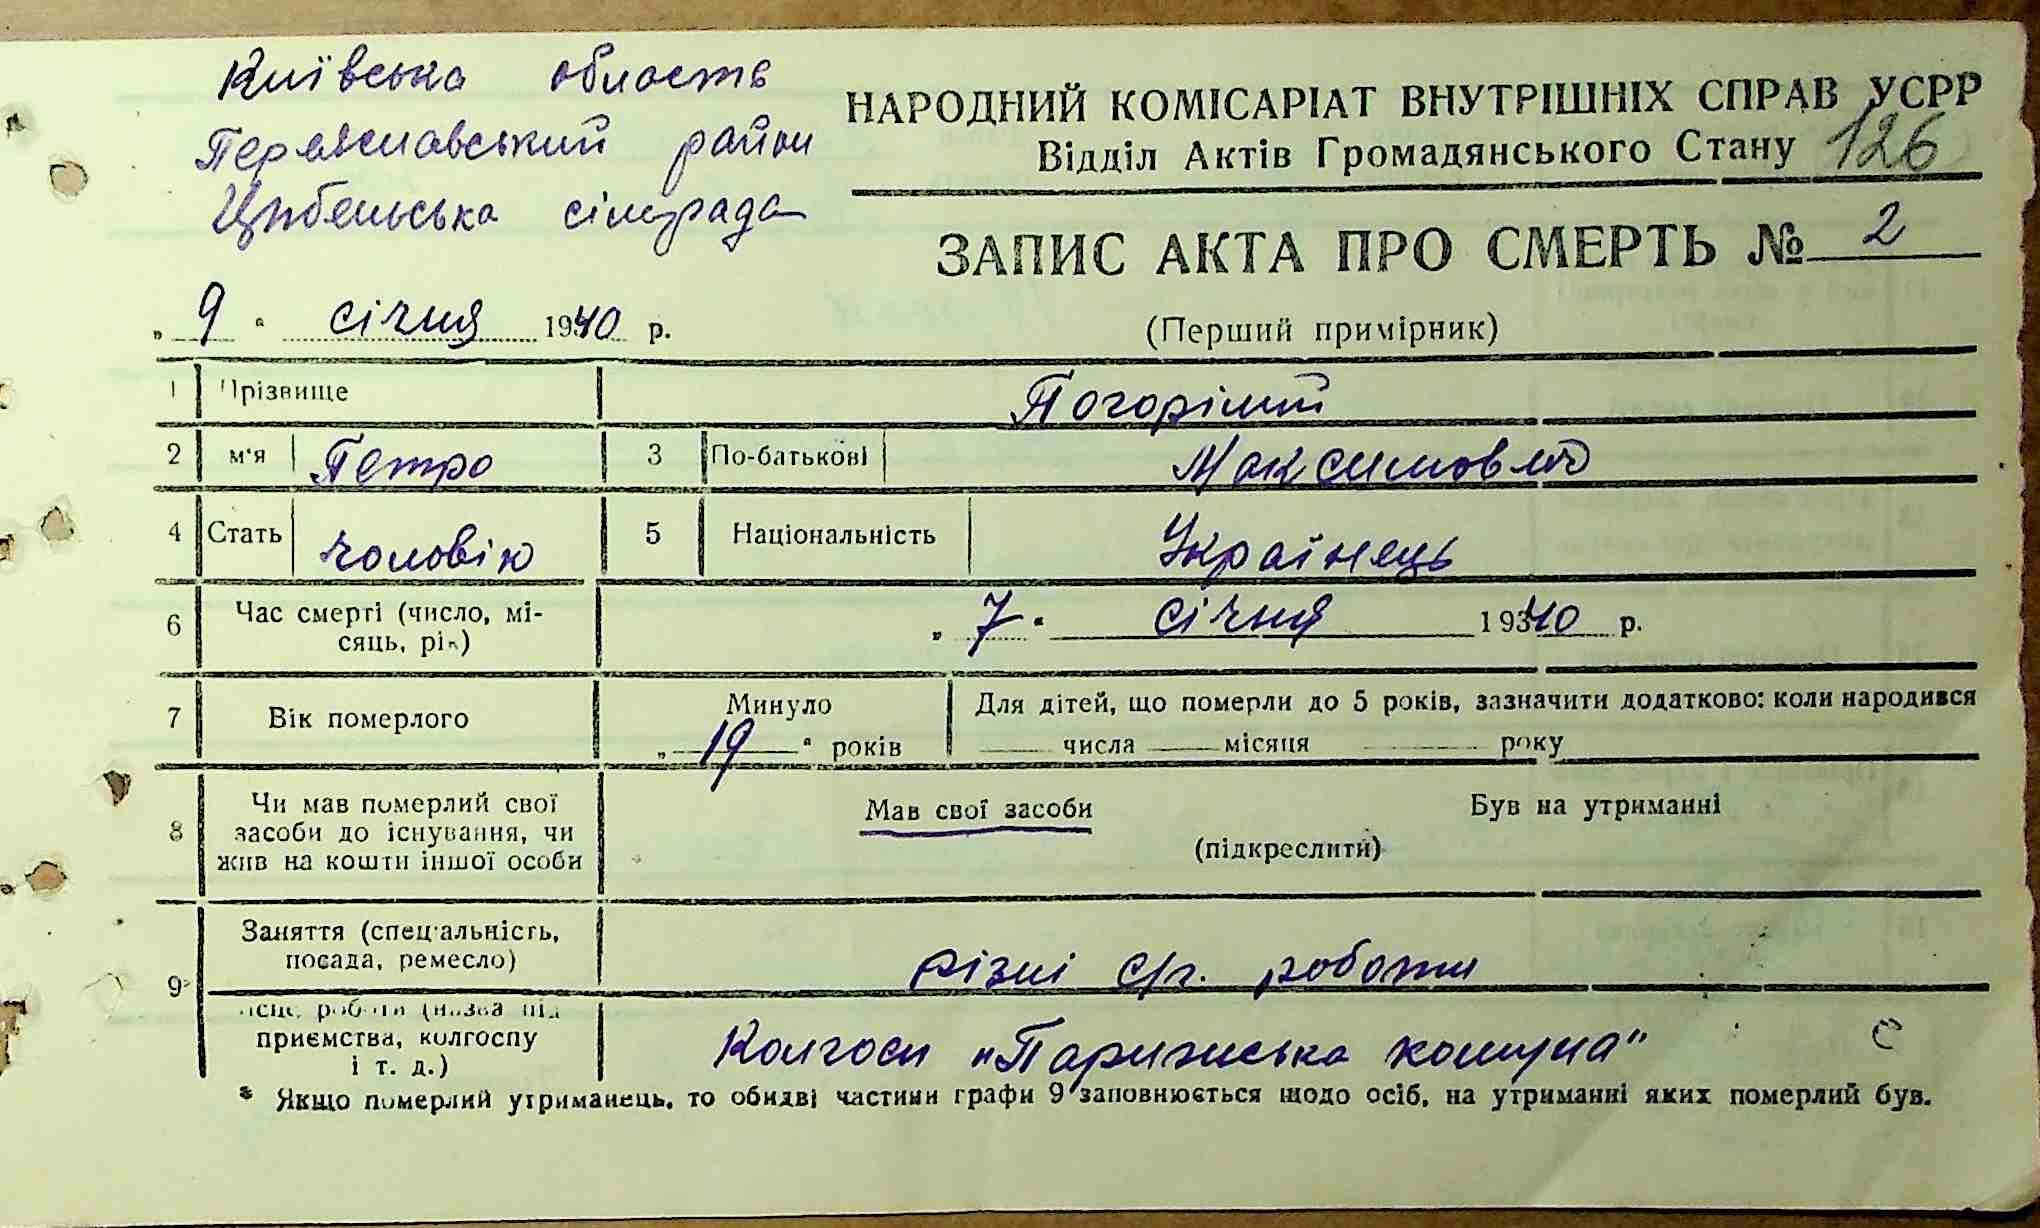 Київська область
Переяславський район
Циблівська сільрада
НАРОДНИЙ КОМІСАРІАТ ВНУТРІШНІХ СПРАВ УСРР
Відділ Актів Громадянського Стану 126
ЗАПИС АКТА ПРО СМЕРТЬ № 2
„ 9 " січня 1940 р.
(Перший примірник)
1 Прізвище Погорілий
2 м'я Петро 3 По-батькові Максимович
4 Стать чоловік 5 Національність Українець
6 Час смерті (число, мі-
сяць, рік) „ 7 " січня 19340 р.
7 Вік померлого Минуло „ 19 " років Для дітей, що померли до 5 років, зазначити додатково: коли народився
числа місяця року
8 Чи мав померлий свої
засоби до існування, чи
жив на кошти іншої особи
Мав свої засоби Був на утриманні
(підкреслити)
9 Заняття (спеціальність,
посада, ремесло) різні с/г. роботи
Місце роботи (назва під
приємства, колгоспу
і т. д.) Колгосп „Паризька комуна"
* Якщо померлий утриманець, то обидві частини графи 9 заповнюється щодо осіб, на утриманні яких померлий був.